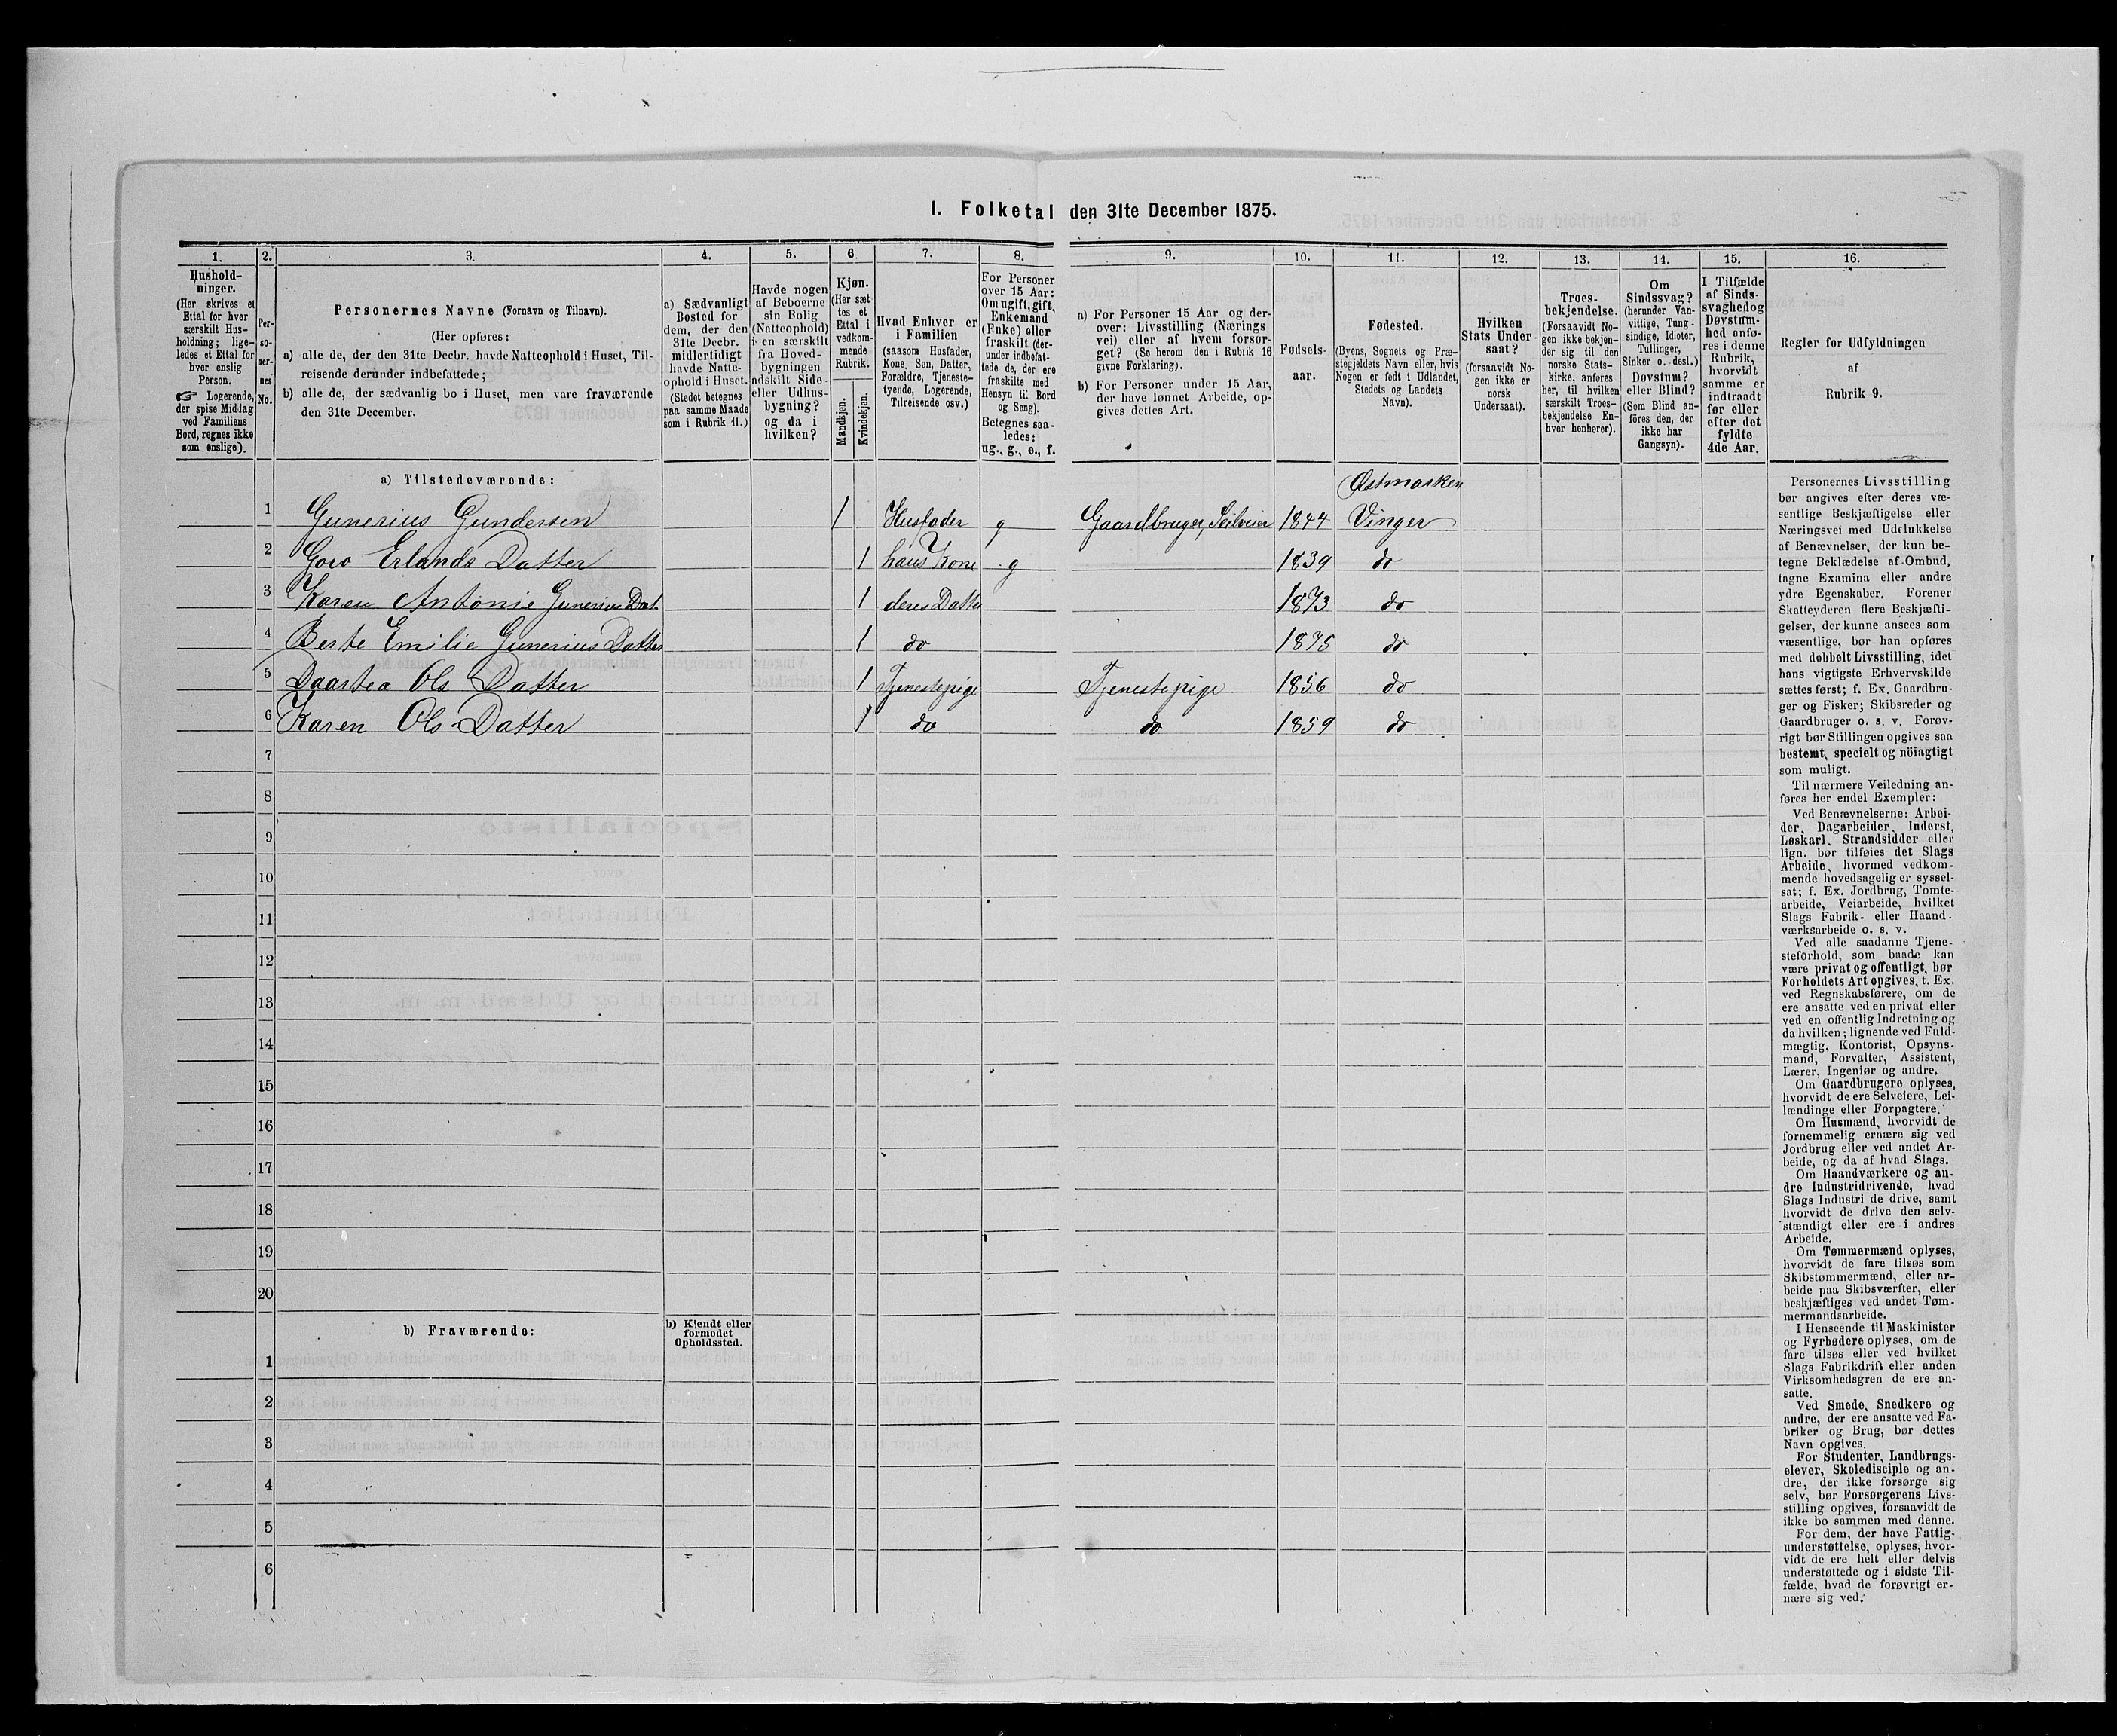 1. Folketal den 31te December 1875.
1.
Hushold-
ninger.
(Her skrives et
Ettal for hver
særskilt Hus-
holdning; lige-
ledes et Ettal for
hver enslig
Person.
☞ Logerende,
der spise Middag
ved Familiens
Bord, regnes ikke
som enslige).
2.
Per-
so-
ner-
nes
No.
3.
Personernes Navne (Fornavn og Tilnavn).
(Her opføres:
a) alle de, der den 31te Decbr. havde Natteophold i Huset, Til-
reisende derunder indbefattede;
b) alle de, der sædvanlig bo i Huset, men vare fraværende
den 31te December.
4.
a) Sædvanligt
Bosted for
dem, der den
31te Decbr.
midlertidigt
havde Natte-
ophold i Huset.
(Stedet betegnes
paa samme Maade
som i Rubrik 11.)
5.
Havde nogen
af Beboerne
sin Bolig
(Natteophold)
i en særskilt
fra Hoved-
bygningen
adskilt Side-
eller Udhus-
bygning?
og da i
hvilken?
6.
Kjøn.
(Her sæt
tes et
Ettal i
vedkom-
mende
Rubrik.
Mandkjøn.
Kvindekjøn.
7.
Hvad Enhver er
i Familien
(saasom Husfader,
Kone, Søn, Datter,
Forældre, Tjeneste-
tyende, Logerende,
Tilreisende osv.)
8.
For Personer
over 15 Aar:
Om ugift, gift,
Enkemand
(Enke) eller
fraskilt (der-
under indbefat-
tede de, der ere
fraskilte med
Hensyn til Bord
og Seng).
Betegnes saa-
ledes:
ug., g., e., f.
9.
a) For Personer 15 Aar og der-
over: Livsstilling (Nærings
vei) eller af hvem forsør-
get? (Se herom den i Rubrik 16
givne Forklaring).
b) For Personer under 15 Aar,
der have lønnet Arbeide, op-
gives dettes Art.
10.
Fødsels-
aar.
11.
Fødested.
(Byens, Sognets og Præ-
stegjeldets Navn eller, hvis
Nogen er født i Udlandet,
Stedets og Landets
Navn).
12.
Hvilken
Stats Under
saat?
(forsaavidt No-
gen ikke er
norsk
Undersaat).
13.
Troes-
bekjendelse.
(Forsaavidt No-
gen ikke bekjen-
der sig til den
norske Stats-
kirke, anføres
her, til hvilken
særskilt Troes-
bekjendelse En-
hver henhører).
14.
Om
Sindssvag?
(herunder Van-
vittige, Tung-
sindige, Idioter,
Tullinger,
Sinker o. desl.)
Døvstum?
eller Blind?
(Som Blind an-
føres den, der
ikke har
Gangsyn).
15.
I Tilfælde
af Sinds-
svaghed og
Døvstum-
hed anfø-
res i denne
Rubrik,
hvorvidt
samme er
indtraadt
før eller
efter det
fyldte
4de Aar.
16.
Regler for Udfyldningen
af
Rubrik 9.
a) Tilstedeværende:
Østmarken
1 Gunerius Gundersen 1 Husfader g Gaardbruger, Seilveier 1844 Vinger
2 Goro Erlands Datter 1 hans Kone g 1839 do
3 Karen Antonie Gunerius Dat. 1 deres Datter 1873 do
4 Berte Emilie Gunerius Datter 1 do 1875 do
5 Daartea Ols Datter 1 Tjenestepige Tjenestepige 1856 do
6 Karen Ols Datter 1 do do 1859 do
7
8
9
10
11
12
13
14
15
16
17
18
19
20
b) Fraværende:
b) Kjendt eller
formodet
Opholdssted.
1
2
3
4
5
6
Personernes Livsstilling
bør angives efter deres væ-
sentlige Beskjæftigelse eller
Næringsvei med Udelukkelse
af Benævnelser, der kun be-
tegne Beklædelse af Ombud,
tagne Examina eller andre
ydre Egenskaber. Forener
Skatteyderen flere Beskjæfti-
gelser, der kunne ansees som
væsentlige, bør han opføres
med dobbelt Livsstilling, idet
hans vigtigste Erhvervskilde
sættes først; f. Ex. Gaardbru-
ger og Fisker; Skibsreder og
Gaardbruger o. s. v. Forøv-
rigt bør Stillingen opgives saa
bestemt, specielt og nöiagtigt
som muligt.
Til nærmere Veiledning an-
føres her endel Exempler:
Ved Benævnelserne: Arbei-
der, Dagarbeider, Inderst,
Løskarl, Strandsidder eller
lign. bør tilføies det Slags
Arbeide, hvormed vedkom-
mende hovedsagelig er syssel-
sat; f. Ex. Jordbrug, Tomte-
arbeide, Veiarbeide, hvilket
Slags Fabrik- eller Haand-
værksarbeide o. s. v.
Ved alle saadanne Tjene-
steforhold, som baade kan
være privat og offentligt, bør
Forholdets Art opgives, t. Ex.
ved Regnskabsførere, om de
ere ansatte ved en privat eller
ved en offentlig Indretning og
da hvilken; lignende ved Fuld-
mægtig, Kontorist, Opsyns-
mand, Forvalter, Assistent,
Lærer, Ingeniør og andre.
Om Gaardbrugere oplyses,
hvorvidt de ere Selveiere, Lei-
lændinge eller Forpagtere.
Om Husmænd, hvorvidt de
fornemmelig ernære sig ved
Jordbrug eller ved andet Ar-
beide, og da af hvad Slags.
Om Haandværkere og an-
dre Industridrivende, hvad
Slags Industri de drive, samt
hvorvidt de drive den selv-
stændigt eller ere i andres
Arbeide.
Om Tømmermænd oplyses,
hvorvidt de fare tilsøs som
Skibstømmermænd, eller ar-
beide paa Skibsværfter, eller
beskjæftiges ved andet Tøm-
mermandsarbeide.
I Henseende til Maskinister
og Fyrbødere oplyses, om de
fare tilsøs eller ved hvilket
Slags Fabrikdrift eller anden
Virksomhedsgren de ere an-
satte.
Ved Smede, Snedkere og
andre, der ere ansatte ved Fa-
briker og Brug, bør dettes
Navn opgives.
For Studenter, Landbrugs-
elever, Skoledisciple og an-
dre, der ikke forsørge sig
selv, bør Forsørgerens Livs-
stilling opgives, forsaavidt de
ikke bo sammen med denne.
For dem, der have Fattig-
understøttelse, oplyses, hvor-
vidt de ere helt eller delvis
understøttede og i sidste Til-
fælde, hvad de forøvrigt er-
nære sig ved.